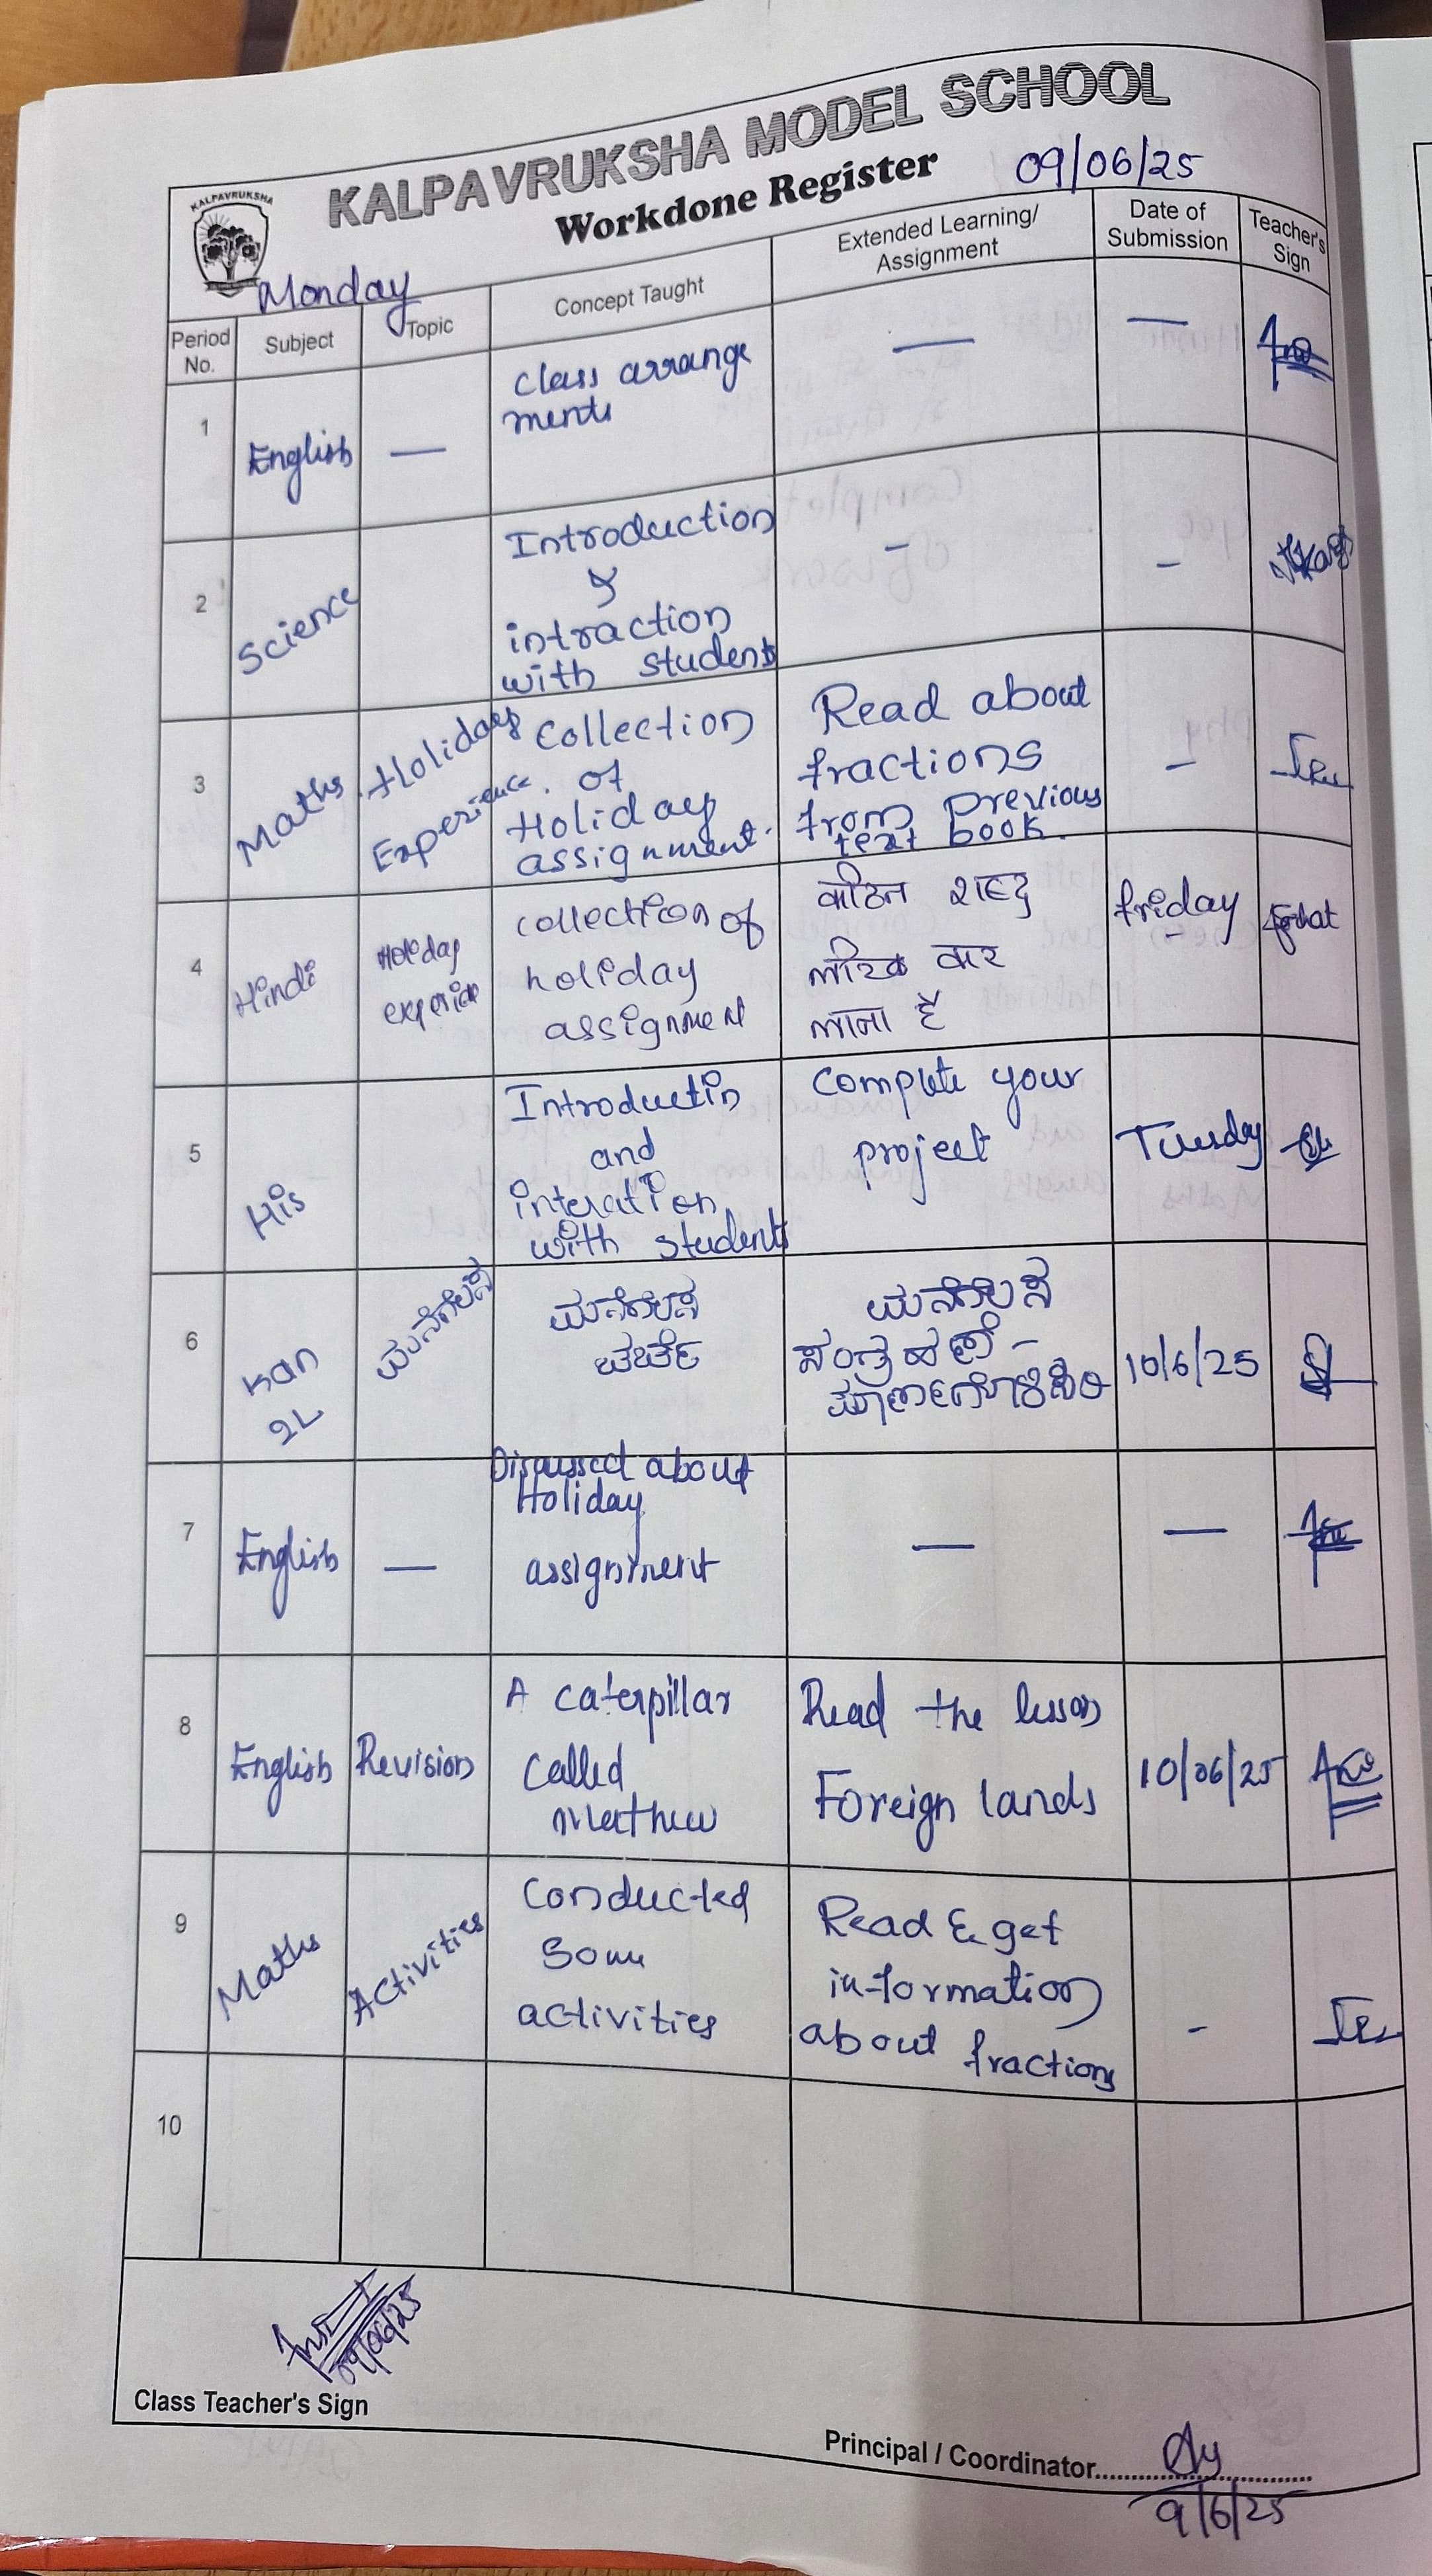 KALPAVRUKSHA MODEL SCHOOL
KALPAVRUKSHA
Workdone Register
09/06/25
Monday
Period No.
Subject
Topic
Concept Taught
Extended Learning/
Assignment
Date of
Submission
Teacher's
Sign
1
English
—
Class arrange
ments
—
—
2
Science
Introduction
&
intraction
with students
-
-
3
Maths
Holidays
Experience.
Collection
of
Holiday
assignment.
Read about
fractions
from previous
text book.
-
4
Hindi
Holiday
collection of
holiday
assignment
कठिन शब्द
लाना है
friday
5
His
Introductin
and
interation
with students
Complete your
project
Tuesday
6
Kan
2L
ಮನೆಗೆಲಸ
ಮನೆಗೆಲಸ
ಚರ್ಚೆ
ಮನೆಗೆಲಸ
10/6/25
7
English
—
Discussed about
Holiday
assignment
—
—
8
English
Revision
A caterpillar
called
Matthew
Read the lesson
Foreign lands
10/06/25
9
Maths
Activities
Conducted
Some
activities
Read & get
information
about fractions
-
10
09/06/25
Class Teacher's Sign
Principal / Coordinator
9/6/25